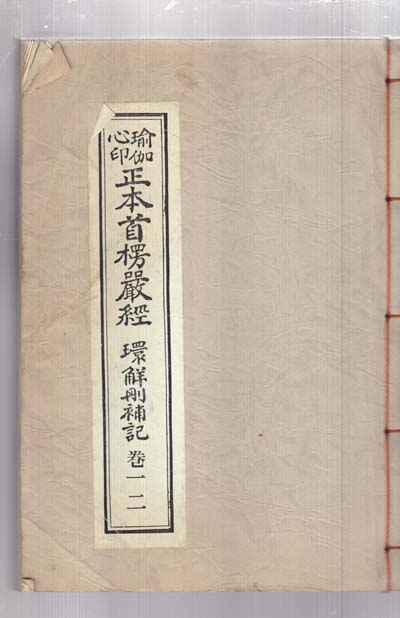 瑜伽心印正本首楞嚴經 環觧刪補記 卷一 二